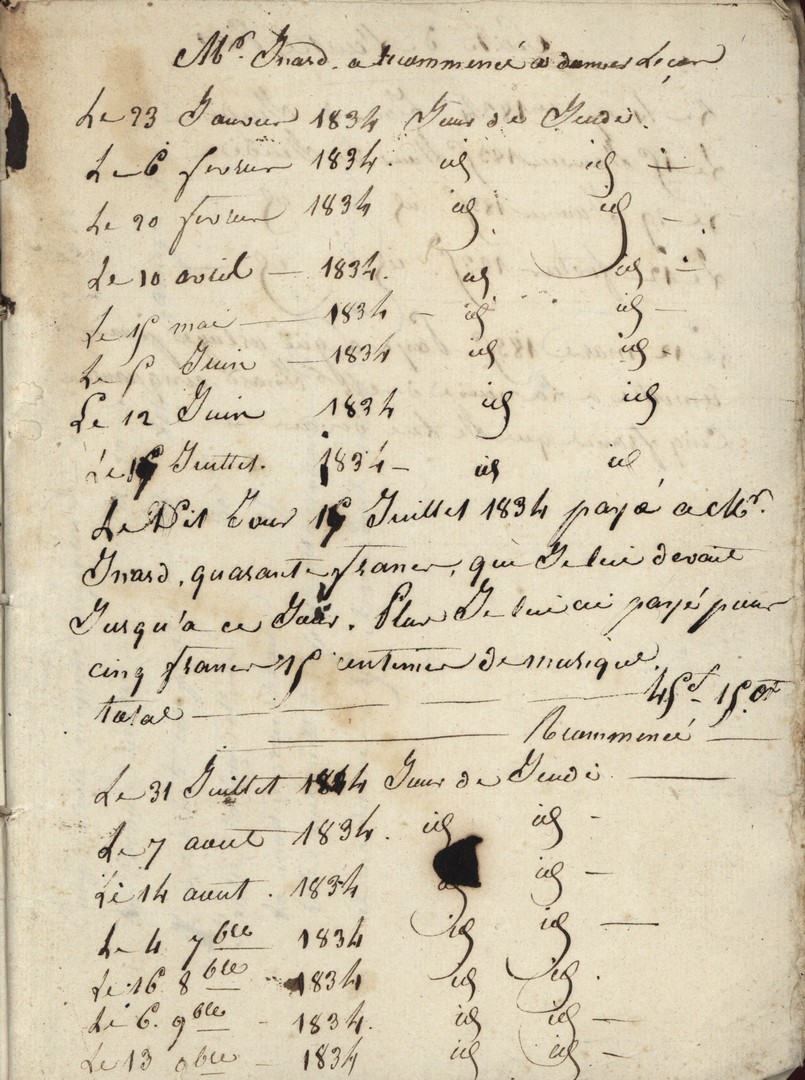 Mr. Inard. a recommencé a donner Leçon
Le 23 Janvier 1834 Jour de Jeudi.
Le 6 fevrier 1834. id id —
Le 20 fevrier 1834 id id —
Le 10 avril — 1834. id id —
Le 15 mai — 1834 — id id —
Le 5 Juin — 1834 id id -
Le 12 Juin 1834 id id
Le 15 Juillet. 1834 — id id
Le Dit Jour 15 Juillet 1834 payé a Mr.
Inard, quarante francs, que Je lui devait
Jusqu'a ce Jour. Plus Je lui ai payé pour
cinq francs 15 centimes de musique.
total — 45f - 15ct
Recommencé —
Le 31 Juillet 1834 Jour de Jeudi —
Le 7 aout 1834. id id -
Le 14 aout. 1834 id id —
Le 4 7bre 1834 id id —
Le 16 8bre — 1834 id id.
Le 6. 9bre - 1834. id id —
Le 13 9bre — 1834 id id. —